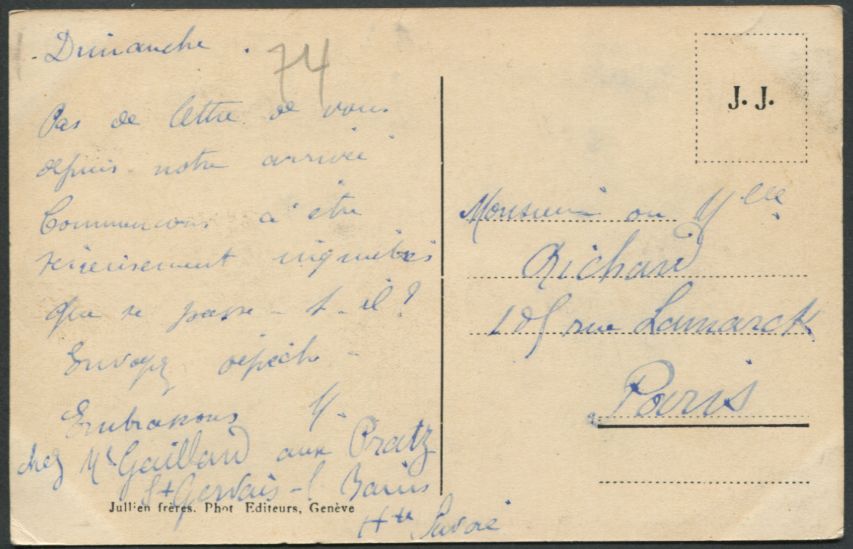 Dimanche.
74
Pas de lettre de vous
depuis notre arrivée
Commencons à être
serieusement inquiets
que se passe-t-il?
Envoyez dépêche -
Embrassons
chez Mr Gaillard aux Pratz
St Gervais-l Bains
Hte Savoie
Jullien frères. Phot Editeurs, Genève
J. J.
Monsieur ou Melle
Richard
rue Lamarck
Paris